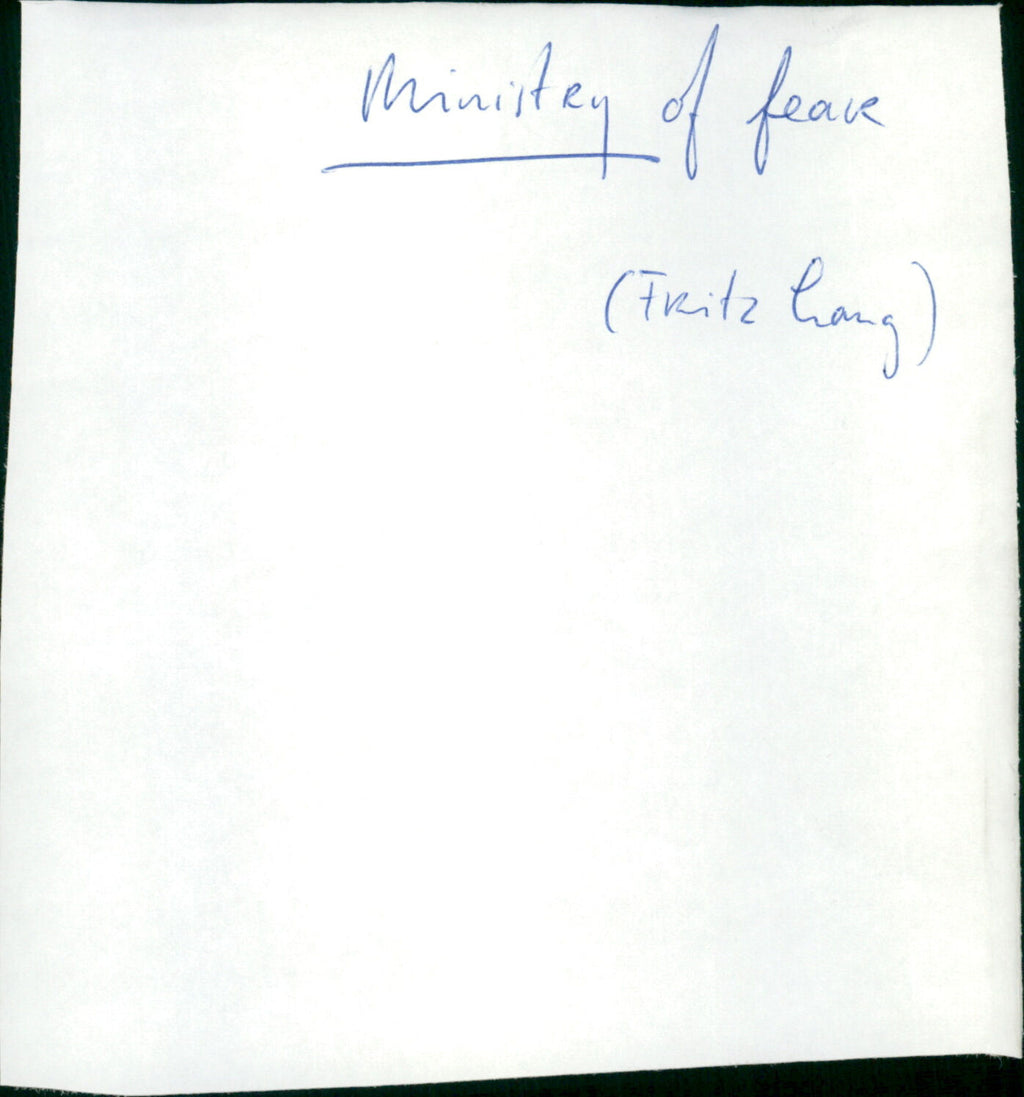 Ministry of fear
(Fritz Lang)